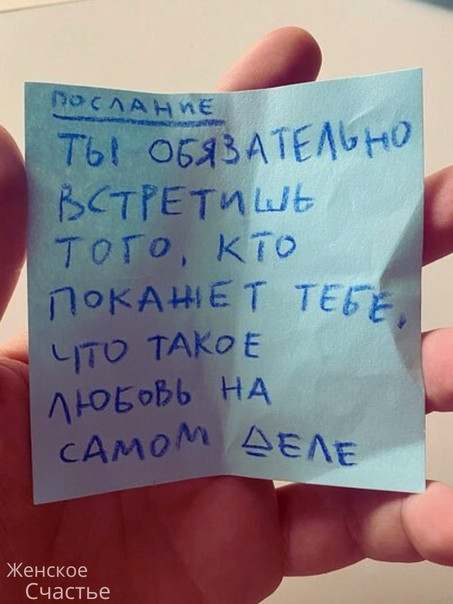 ПОСЛАНИЕ
ТЫ ОБЯЗАТЕЛЬНО
ВСТРЕТИШЬ
ТОГО, КТО
ПОКАЖЕТ ТЕБЕ,
ЧТО ТАКОЕ
ЛЮБОВЬ НА
САМОМ ДЕЛЕ
Женское
Счастье